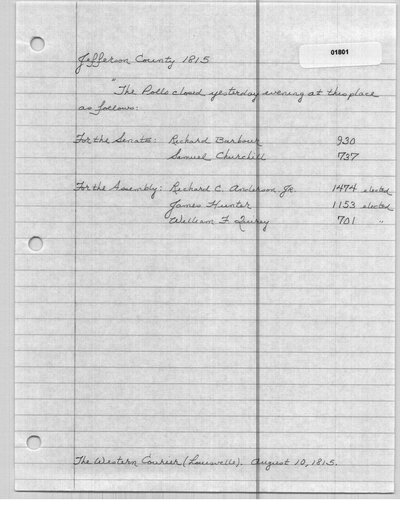 01801
Jefferson County 1815
"The Polls closed yesterday evening at this place
as follows:
For the Senate: Richard Barbour 930
Samuel Churchill 737
For the Assembly: Richard C. Anderson Jr. 1474 elected
James Hunter 1153 elected
William F. Quirey 701 "
The Western Courier (Louisville). August 10, 1815.